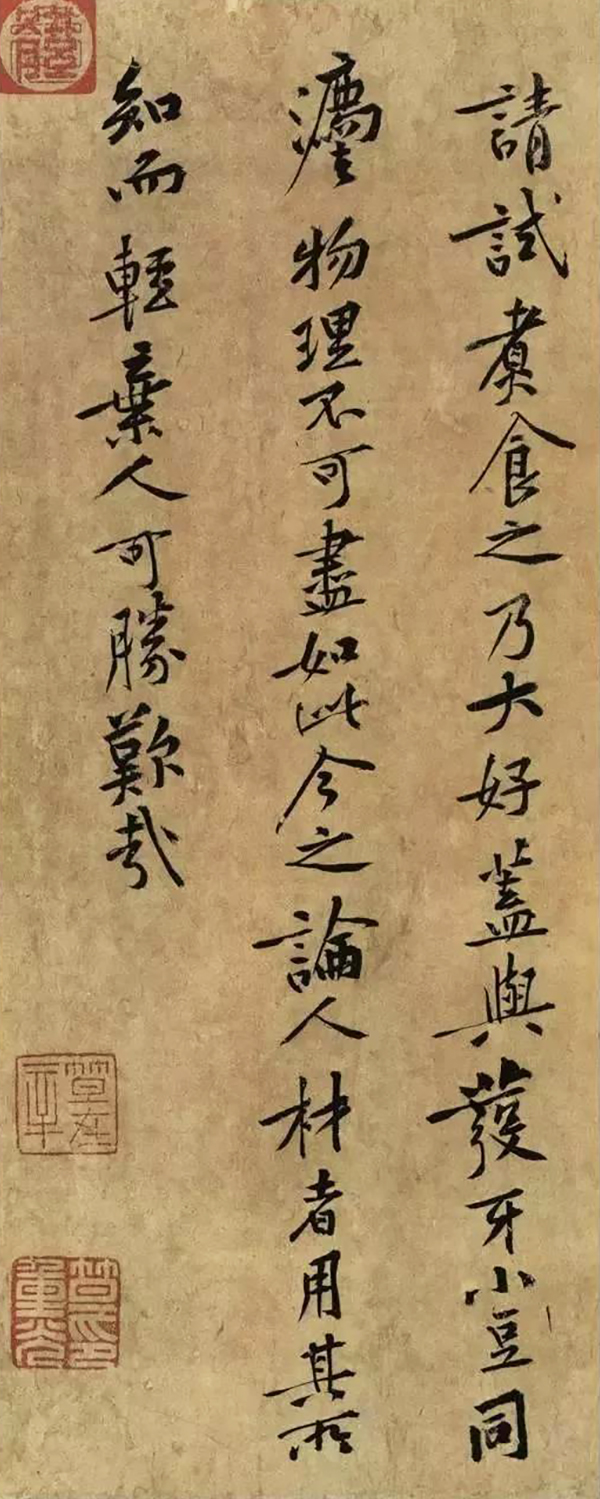 請試煮食之乃大好蓋與發牙小豆同
灋物理不可盡如此今之論人材者用其所
知而輕棄人可勝歎哉